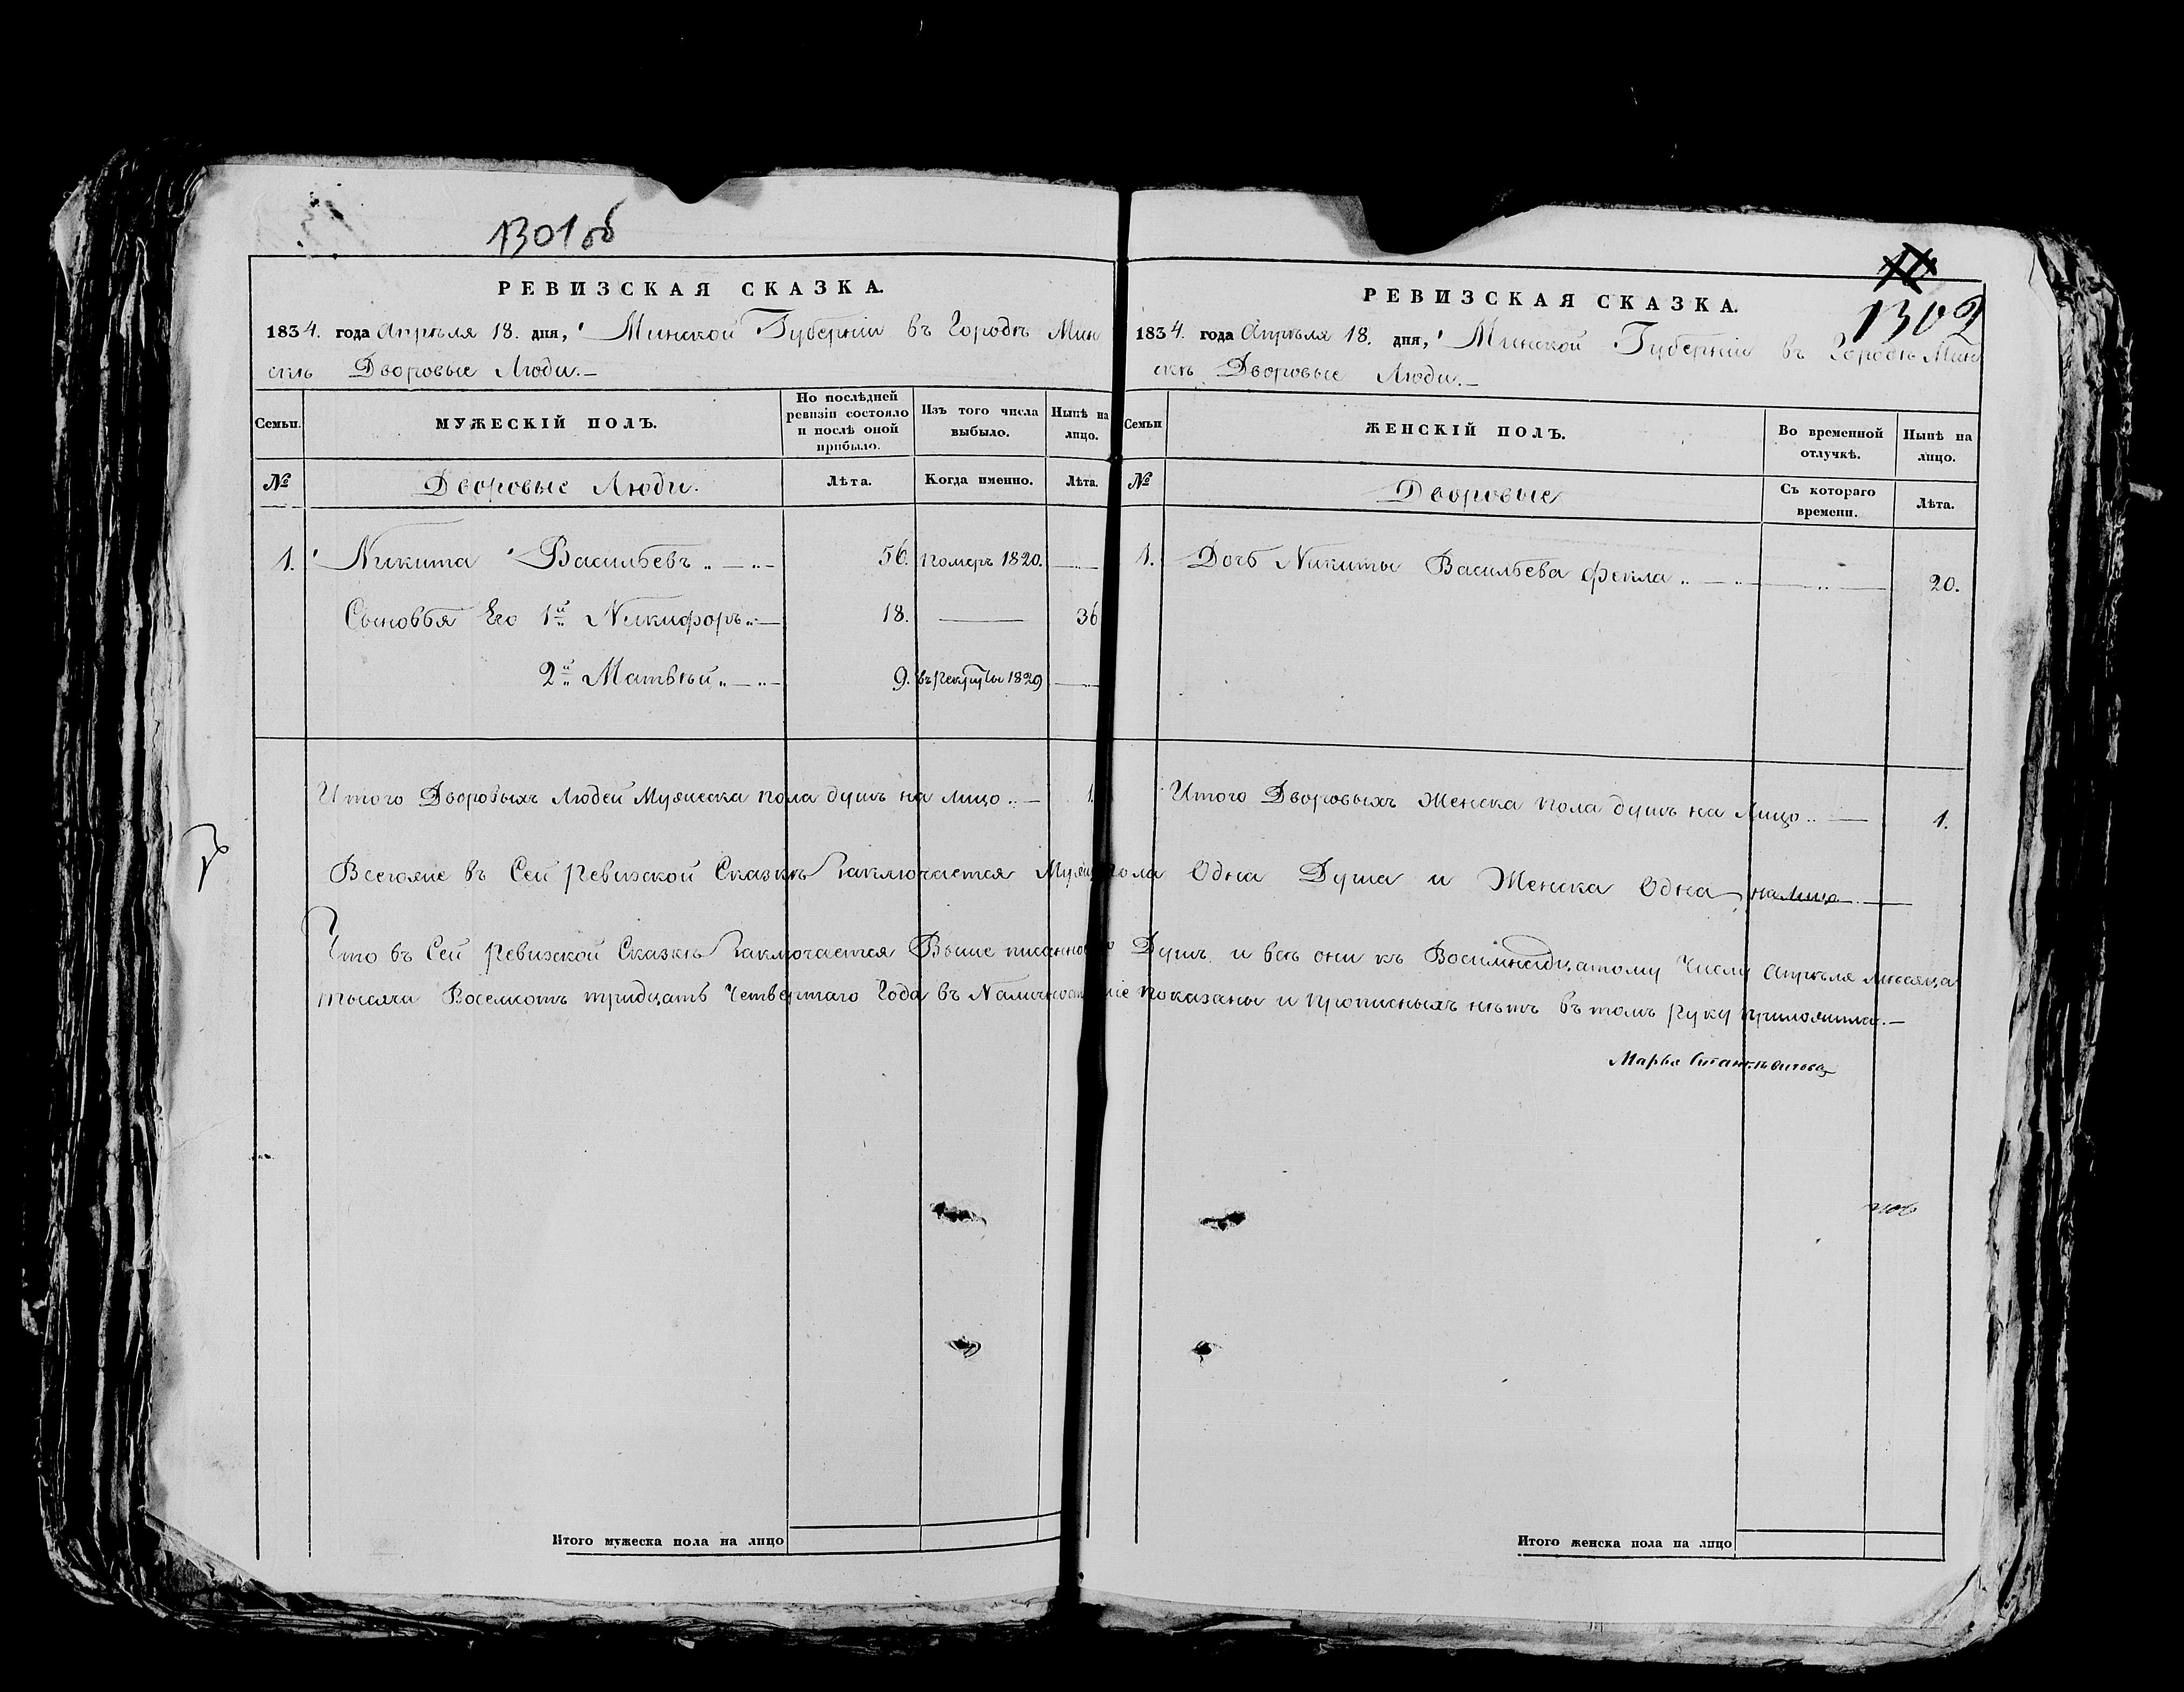 1301 об
РЕВИЗСКАЯ СКАЗКА.
1834. года Апрѣля 18. дня, Минской Губерніи въ Городѣ Мин
скѣ Дворовые Люди.
Семьи. МУЖЕСКІЙ ПОЛЪ. По послѣдней ревизіи состояло и послѣ оной прибыло. Изъ того числа выбыло. Нынѣ на лицо.
№ Дворовые Люди. Лѣта. Когда именно. Лѣта.
1. Никита Васильевъ 56. померъ 1820.
Сыновья Его 1й Никифоръ 18. — 36
2й Матвѣй 9. въ рекруты 1829
Итого Дворовыхъ Людей Мужеска пола душъ на лицо 1.
Итого мужеска пола на лицо
1302
РЕВИЗСКАЯ СКАЗКА.
1834. года Апрѣля 18. дня, Минской Губерніи въ Городѣ Мин
скѣ Дворовые Люди.
Семьи ЖЕНСКІЙ ПОЛЪ. Во временной отлучкѣ. Нынѣ на лицо.
№ Дворовые Съ котораго времени. Лѣта.
1. Дочь Никиты Васильева Фекла 20.
Итого Дворовыхъ Женска пола душъ на Лицо 1.
Всегоже въ Сей Ревизской Сказкѣ Заключается Муже пола Одна Душа и Женска Одна на Лицо
Что въ Сей Ревизской Сказкѣ Заключается Выше писанное Душъ и всѣ они къ Восимнадцатому Числу Апрѣля мѣсяца
тысяча Восемсотъ тридцать Четвертаго Года въ показаны и прописныхъ нѣтъ въ томъ руку приложила.
Марья
Итого женска пола на лицо